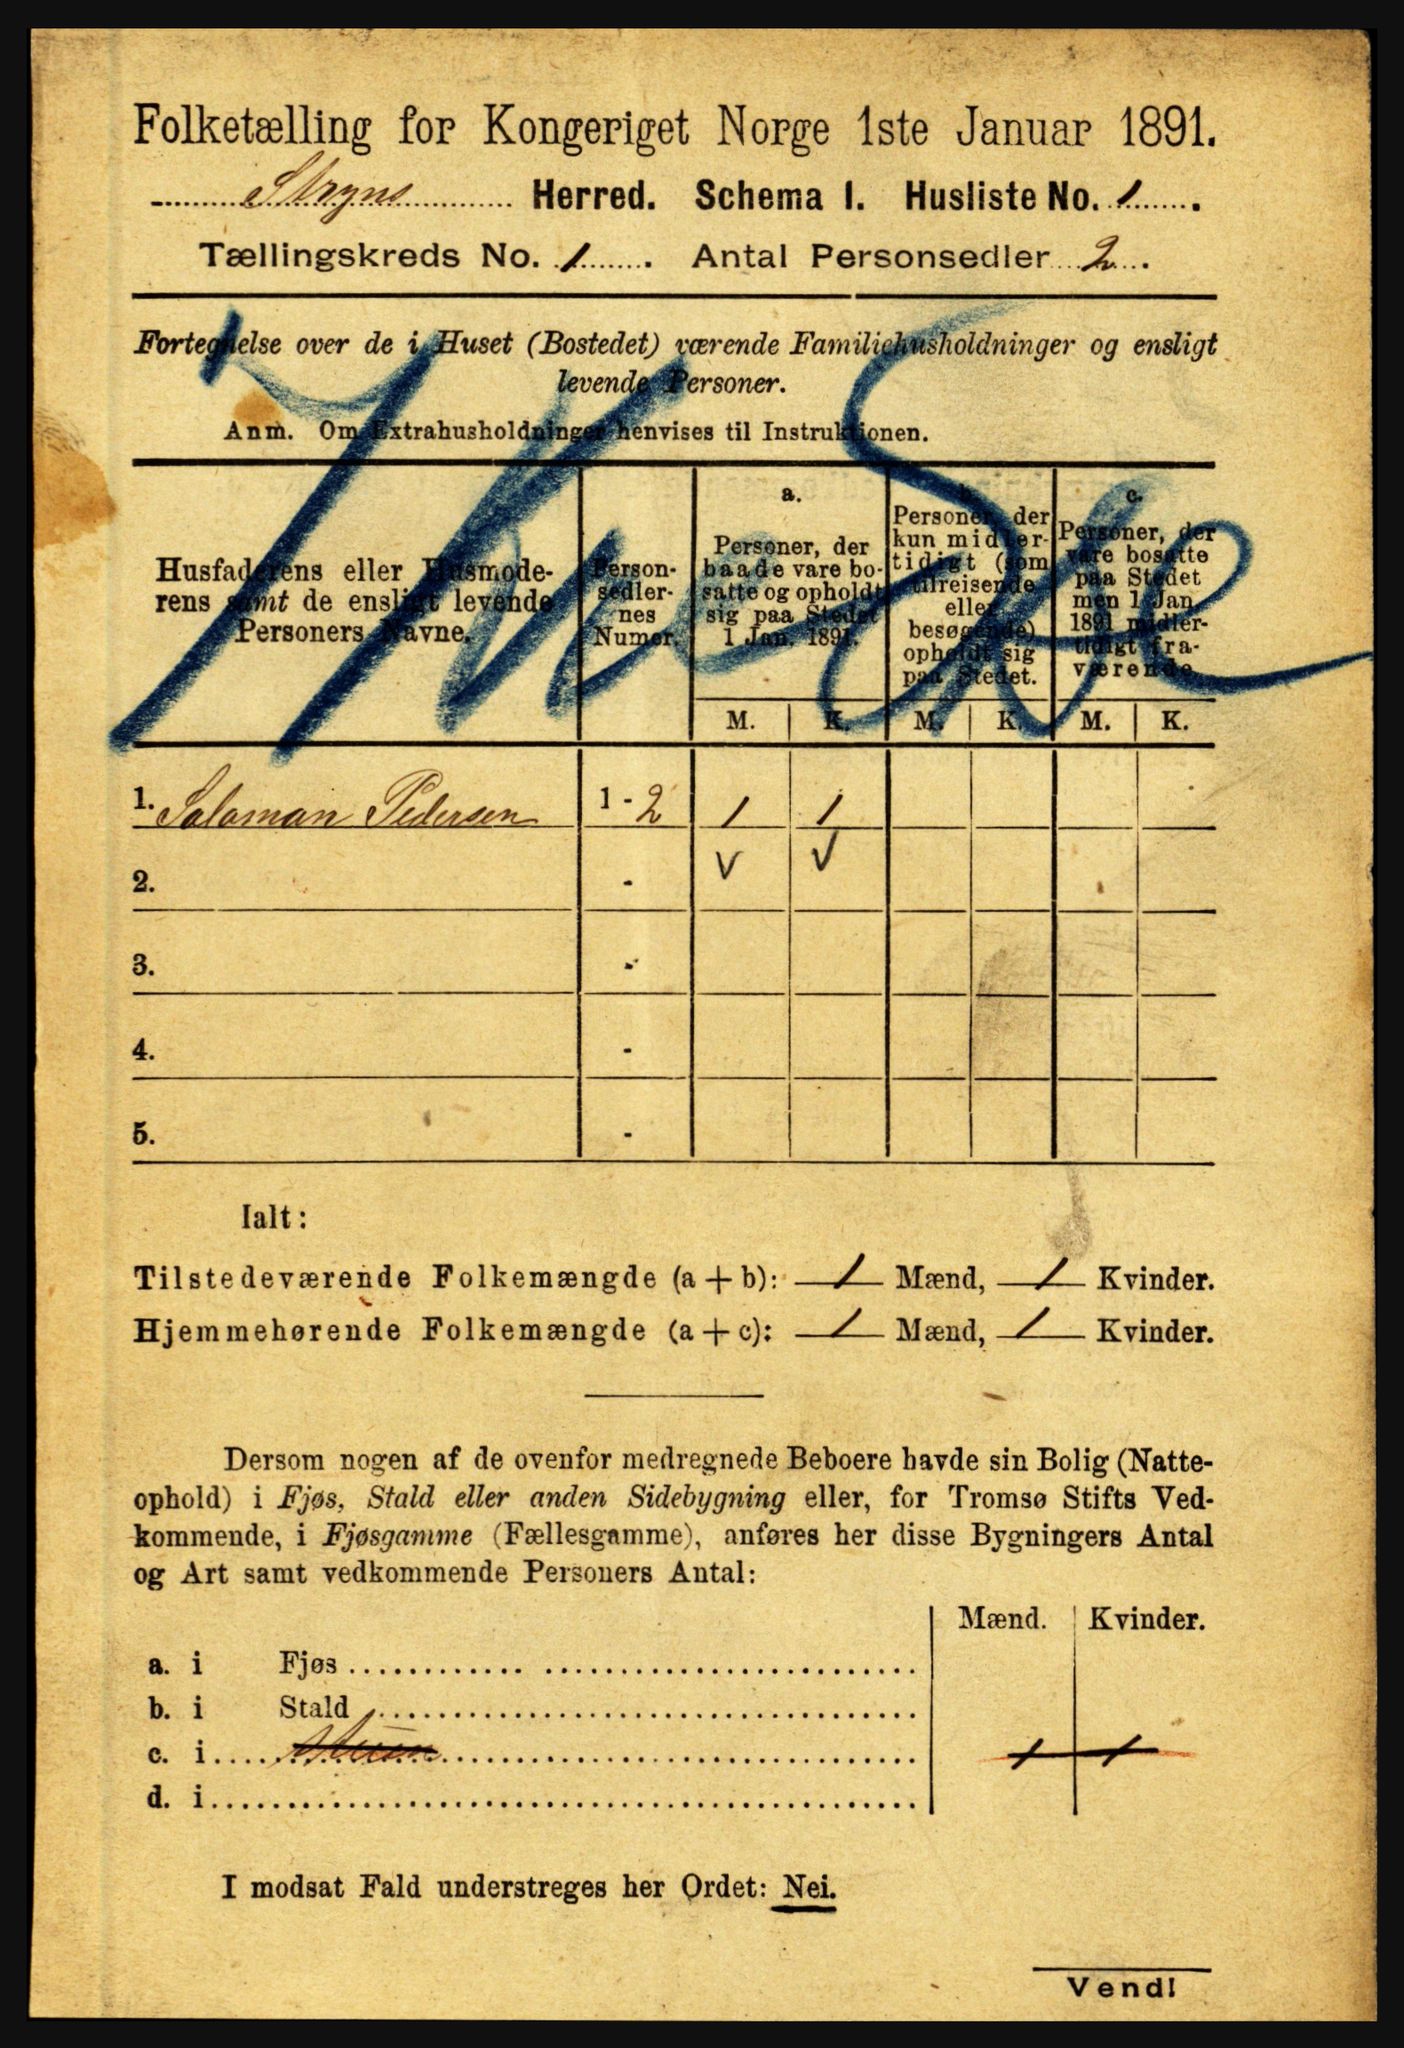 Folketælling for Kongeriget Norge 1ste Januar 1891.
Stryns Herred. Schema I. Husliste No. 1.
Tællingskreds No. 1. Antal Personsedler 2.
Fortegnelse over de i Huset (Bostedet) værende Familiehusholdninger og ensligt
levende Personer.
Anm. Om Extrahusholdninger henvises til Instruktionen.
Husfaderens eller Husmode-
rens samt de ensligt levende
Personers Navne.
Person-
sedler-
nes
Numer.
a.
Personer, der
baade vare bo-
satte og opholdt
sig paa Stedet
1 Jan. 1891.
b.
Personer, der
kun midler-
tidigt (som
tilreisende
eller
besøgende)
opholdt sig
paa Stedet.
c.
Personer, der
vare bosatte
paa Stedet
men 1 Jan.
1891 midler-
tidigt fra-
værende.
M. K. M. K. M. K.
1. Salaman Pedersen 1 - 2 1 1
2. - V V
3. -
4. -
5. -
Ialt:
Tilstedeværende Folkemængde (a + b): 1 Mænd, 1 Kvinder.
Hjemmehørende Folkemængde (a + c): 1 Mænd, 1 Kvinder.
Dersom nogen af de ovenfor medregnede Beboere havde sin Bolig (Natte-
ophold) i Fjøs, Stald eller anden Sidebygning eller, for Tromsø Stifts Ved-
kommende, i Fjøsgamme (Fællesgamme), anføres her disse Bygningers Antal
og Art samt vedkommende Personers Antal:
Mænd. Kvinder.
a. i Fjøs
b. i Stald
c. i 1 1
d. i
I modsat Fald understreges her Ordet: Nei.
Vend!